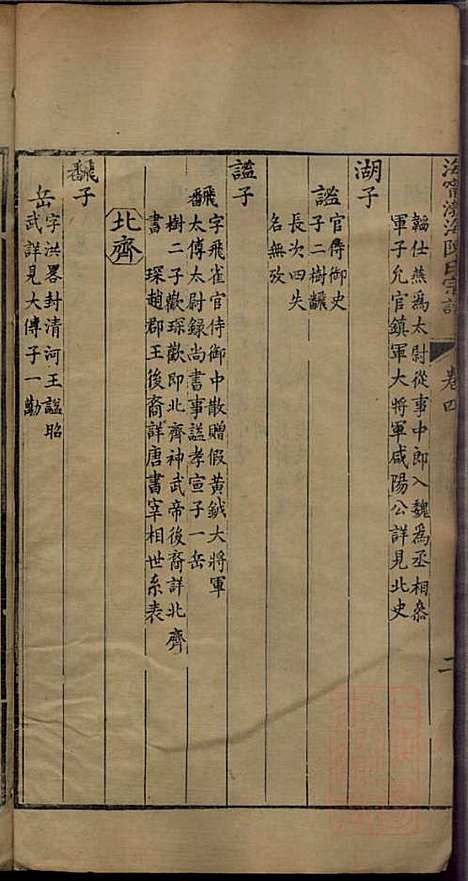 海寧渤海陳氏宗譜 卷四 二
韜仕燕為太尉從事中郎入魏為丞相叅
軍子允官鎮軍大將軍咸陽公詳見北史
湖子
謐
官侍御史
子二樹飜
長次四失
名無攷
謐子
飜
字飛雀官侍御中散贈假黃鉞大將軍
太傅太尉錄尚書事謚孝宣子一岳
樹二子歡琛歡即北齊神武帝後裔詳北齊
書 琛趙郡王後裔詳唐書宰相世系表
北齊
飜子
岳
字洪畧封清河王謚昭
武詳見大傳子一勱